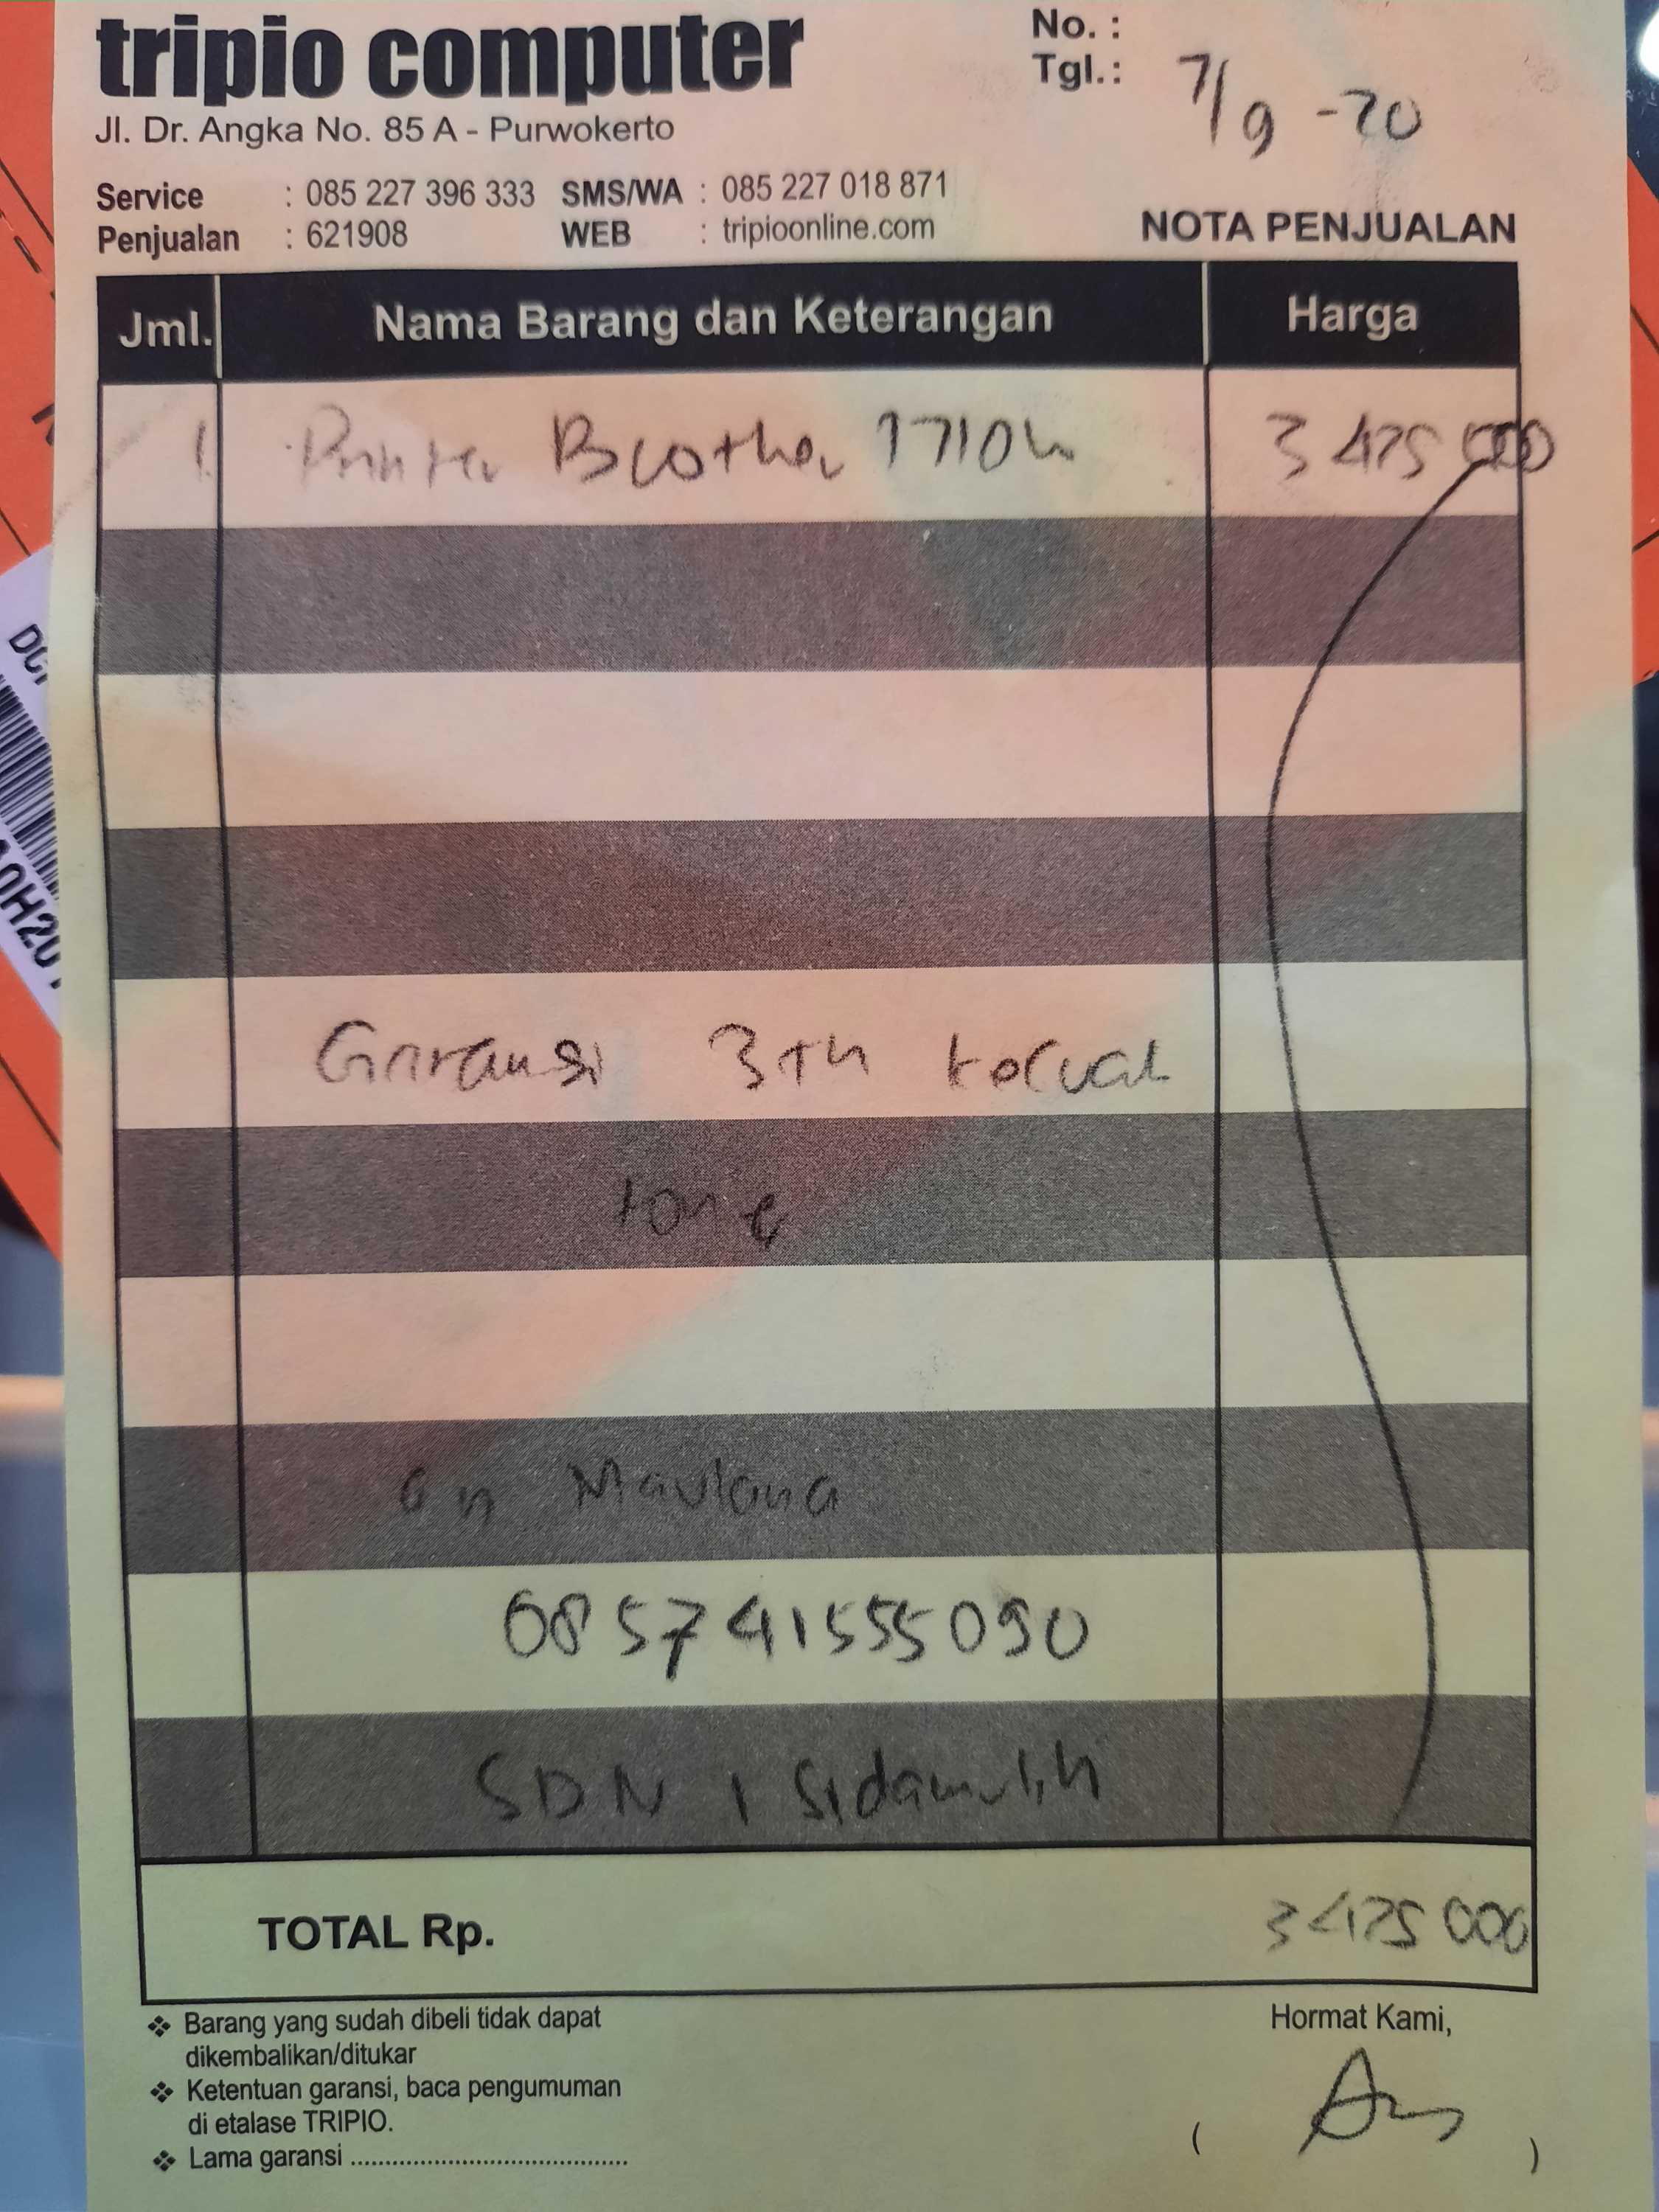 tripio computer
Jl. Dr. Angka No. 85 A - Purwokerto
No. :
Tgl.: 7/9 -20
Service : 085 227 396 333 SMS/WA : 085 227 018 871
Penjualan : 621908 WEB : tripioonline.com
NOTA PENJUALAN
Jml. Nama Barang dan Keterangan Harga
1 Printer Brother 1710w 3475000
Garansi 3th kecuali
tone
an Maulana
085741555090
SDN 1 Sidamulih
TOTAL Rp. 3475000
❖ Barang yang sudah dibeli tidak dapat
dikembalikan/ditukar
❖ Ketentuan garansi, baca pengumuman
di etalase TRIPIO.
❖ Lama garansi ........................................
Hormat Kami,
( )